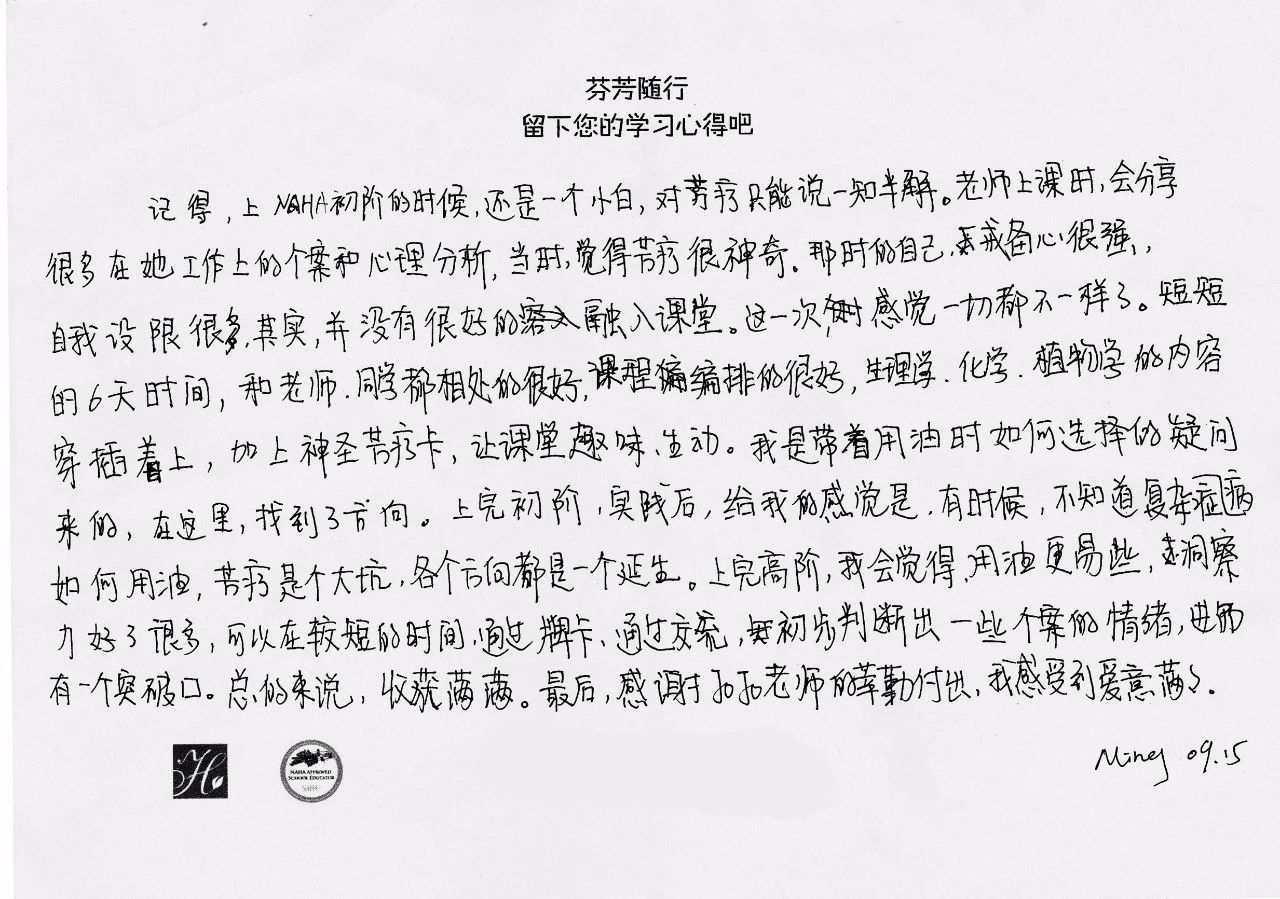 芬芳随行
留下您的学习心得吧
记得,上NAHA初阶的时候,还是一个小白,对芳疗只能说一知半解。老师上课时,会分享
很多在她工作上的个案和心理分析,当时,觉得芳疗很神奇。那时的自己,戒备心很强,
自我设限很多,其实,并没有很好的融入课堂。这一次,感觉一切都不一样了。短短
的6天时间,和老师.同学都相处的很好,课程编排的很好,生理学.化学.植物学的内容
穿插着上,加上神圣芳疗卡,让课堂趣味、生动。我是带着用油时如何选择的疑问
来的,在这里,找到了方向。上完初阶,实践后,给我的感觉是,有时候,不知道复杂症病
如何用油,芳疗是个大坑,各个方向都是一个延生。上完高阶,我会觉得,用油更易些,洞察
力好了很多,可以在较短的时间,通过牌卡、通过交流,初步判断出一些个案的情绪,进而
有一个突破口。总的来说,收获满满。最后,感谢老师的辛勤付出,我感受到爱意满々.
H
NAHA APPROVED
SCHOOL EDUCATOR
NAHA
Ming 09.15